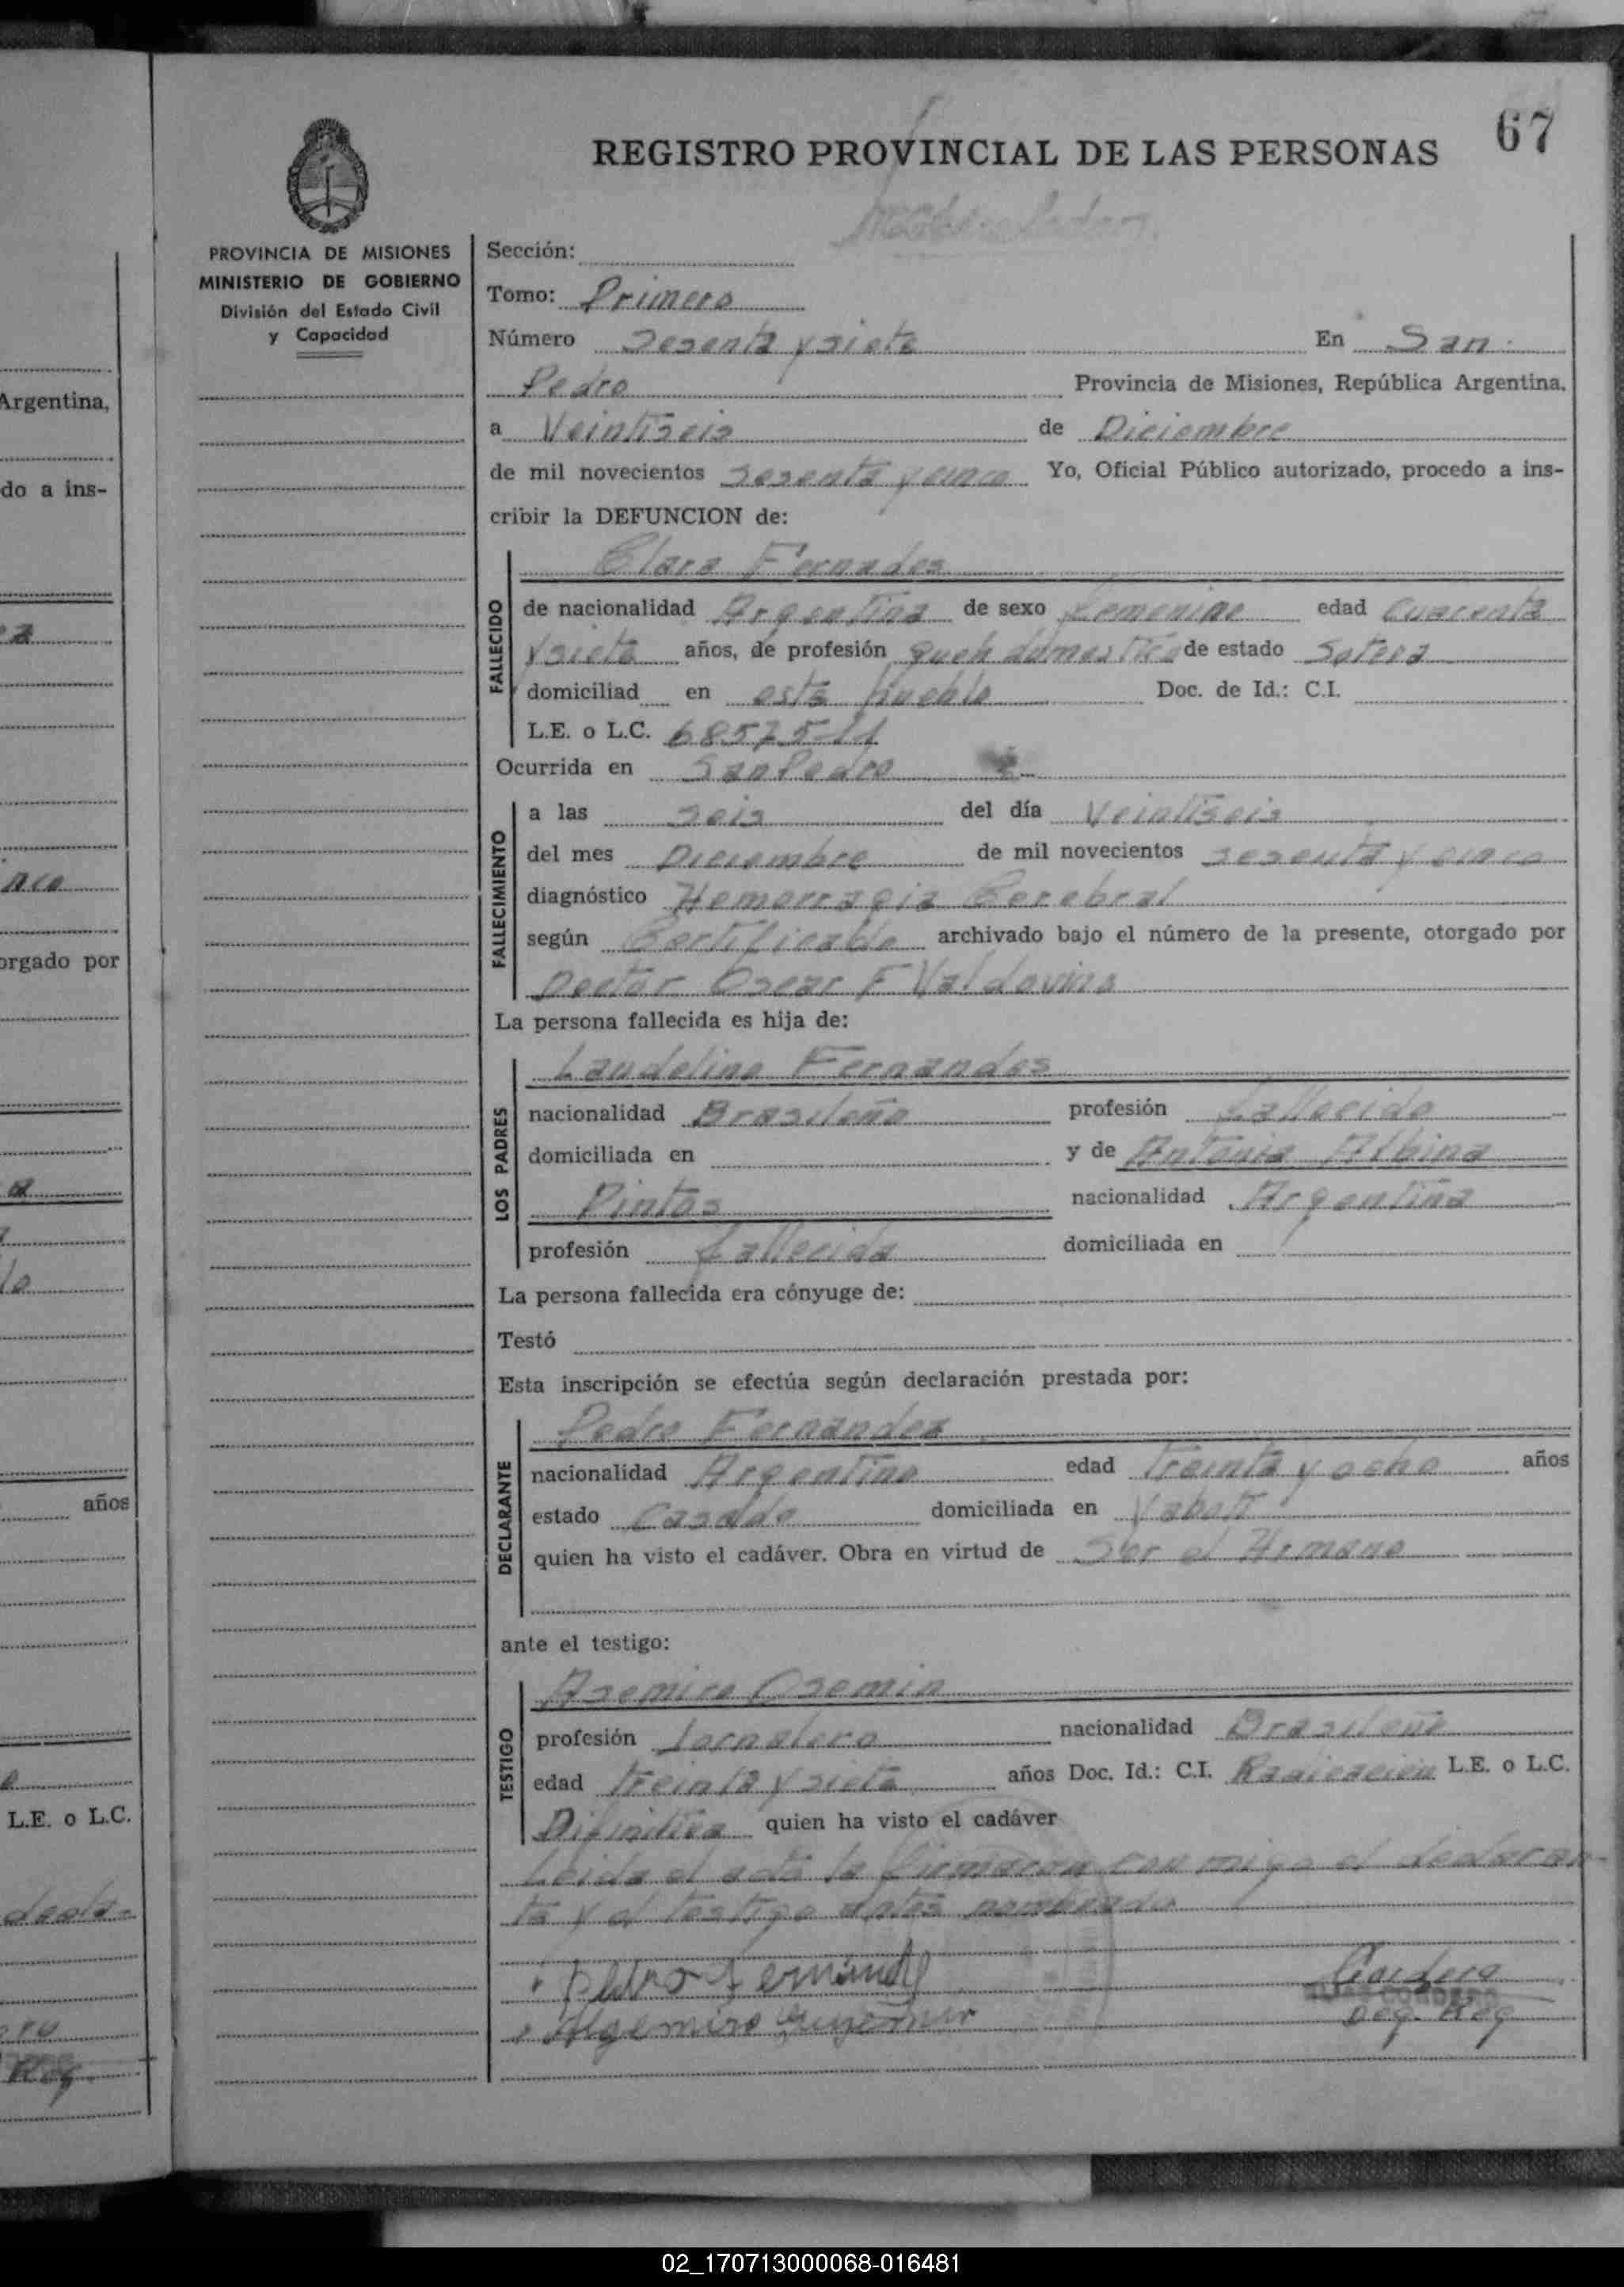 67
REGISTRO PROVINCIAL DE LAS PERSONAS
PROVINCIA DE MISIONES
MINISTERIO DE GOBIERNO
División del Estado Civil
y Capacidad
Sección:
Tomo: Primero
Número Sesenta y siete En San
Pedro Provincia de Misiones, República Argentina.
a Veintiseis de Diciembre
de mil novecientos sesenta y cinco Yo, Oficial Público autorizado, procedo a ins-
cribir la DEFUNCION de:
FALLECIDO
Clara Fernades
de nacionalidad Argentina de sexo femenino edad cuarenta
y siete años, de profesión queh domestico de estado Sotera
domiciliad en este pueblo Doc. de Id.: C.I.
L.E. o L.C. 6857511
Ocurrida en San Pedro
FALLECIMIENTO
a las seis del día Veintiseis
del mes Diciembre de mil novecientos sesenta y cinco
diagnóstico Hemorragia Cerebral
según Certificado archivado bajo el número de la presente, otorgado por
Doctor Oscar F Valdovino
La persona fallecida es hija de:
LOS PADRES
Laudelino Fernandes
nacionalidad Brasileño profesión fallecido
domiciliada en y de Antonia Albina
Pintos nacionalidad Argentina
profesión fallecida domiciliada en
La persona fallecida era cónyuge de:
Testó
Esta inscripción se efectúa según declaración prestada por:
DECLARANTE
Pedro Fernandez
nacionalidad Argentino edad treinta y ocho años
estado Casado domiciliada en Yaboti
quien ha visto el cadáver. Obra en virtud de Ser el Hrmano
ante el testigo:
TESTIGO
Asemiro Osemin
profesión Jornalero nacionalidad Brasileño
edad treinta y siete años Doc. Id.: C.I. Radicacion L.E. o L.C.
Difinitiva quien ha visto el cadáver
Leida el acta la firmaron con migo el declaran-
te y el testigo antes nombrado
Pedro Fernandez
Algemiro
Cordero
Deg. Reg
Argentina,
do a ins-
orgado por
años
L.E. o L.C.
Reg.
02_170713000068-016481